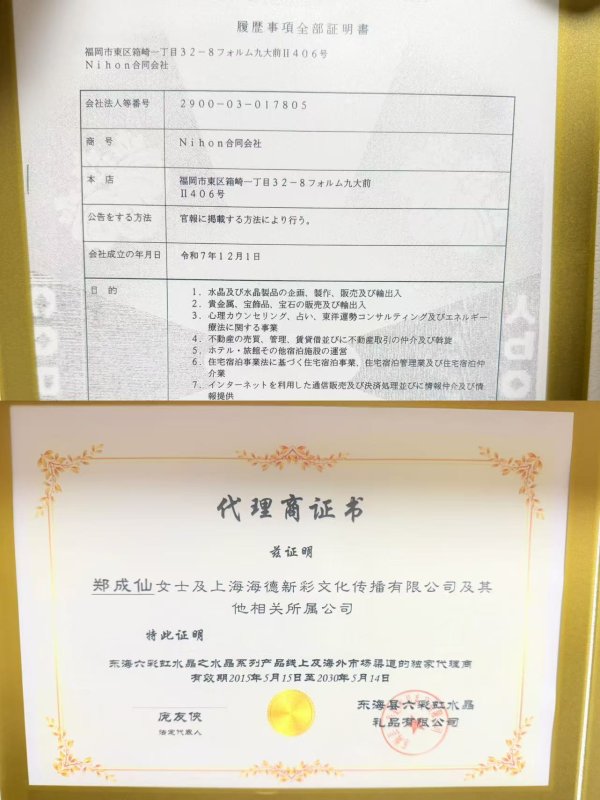 履歴事項全部証明書
福岡市東区箱崎一丁目32-8フォルム九大前Ⅱ406号
Nihon合同会社
会社法人等番号 2900-03-017805
商 号 Nihon合同会社
本 店 福岡市東区箱崎一丁目32-8フォルム九大前
Ⅱ406号
公告をする方法 官報に掲載する方法により行う。
会社成立の年月日 令和7年12月1日
目 的 1. 水晶及び水晶製品の企画、製作、販売及び輸出入
2. 貴金属、宝飾品、宝石の販売及び輸出入
3. 心理カウンセリング、占い、東洋運勢コンサルティング及びエネルギー
療法に関する事業
4. 不動産の売買、管理、賃貸借並びに不動産取引の仲介及び斡旋
5. ホテル・旅館その他宿泊施設の運営
6. 住宅宿泊事業法に基づく住宅宿泊事業、住宅宿泊管理業及び住宅宿泊仲
介業
7. インターネットを利用した通信販売及び決済処理並びに情報仲介及び情
報提供
代理商证书
兹证明
郑成仙女士及上海海德新彩文化传播有限公司及其
他相关所属公司
特此证明
东海六彩虹水晶之水晶系列产品线上及海外市场渠道的独家代理商
有效期2015年5月15日至2030年5月14日
庞友侠
法定代表人
东海县六彩虹水晶
礼品有限公司